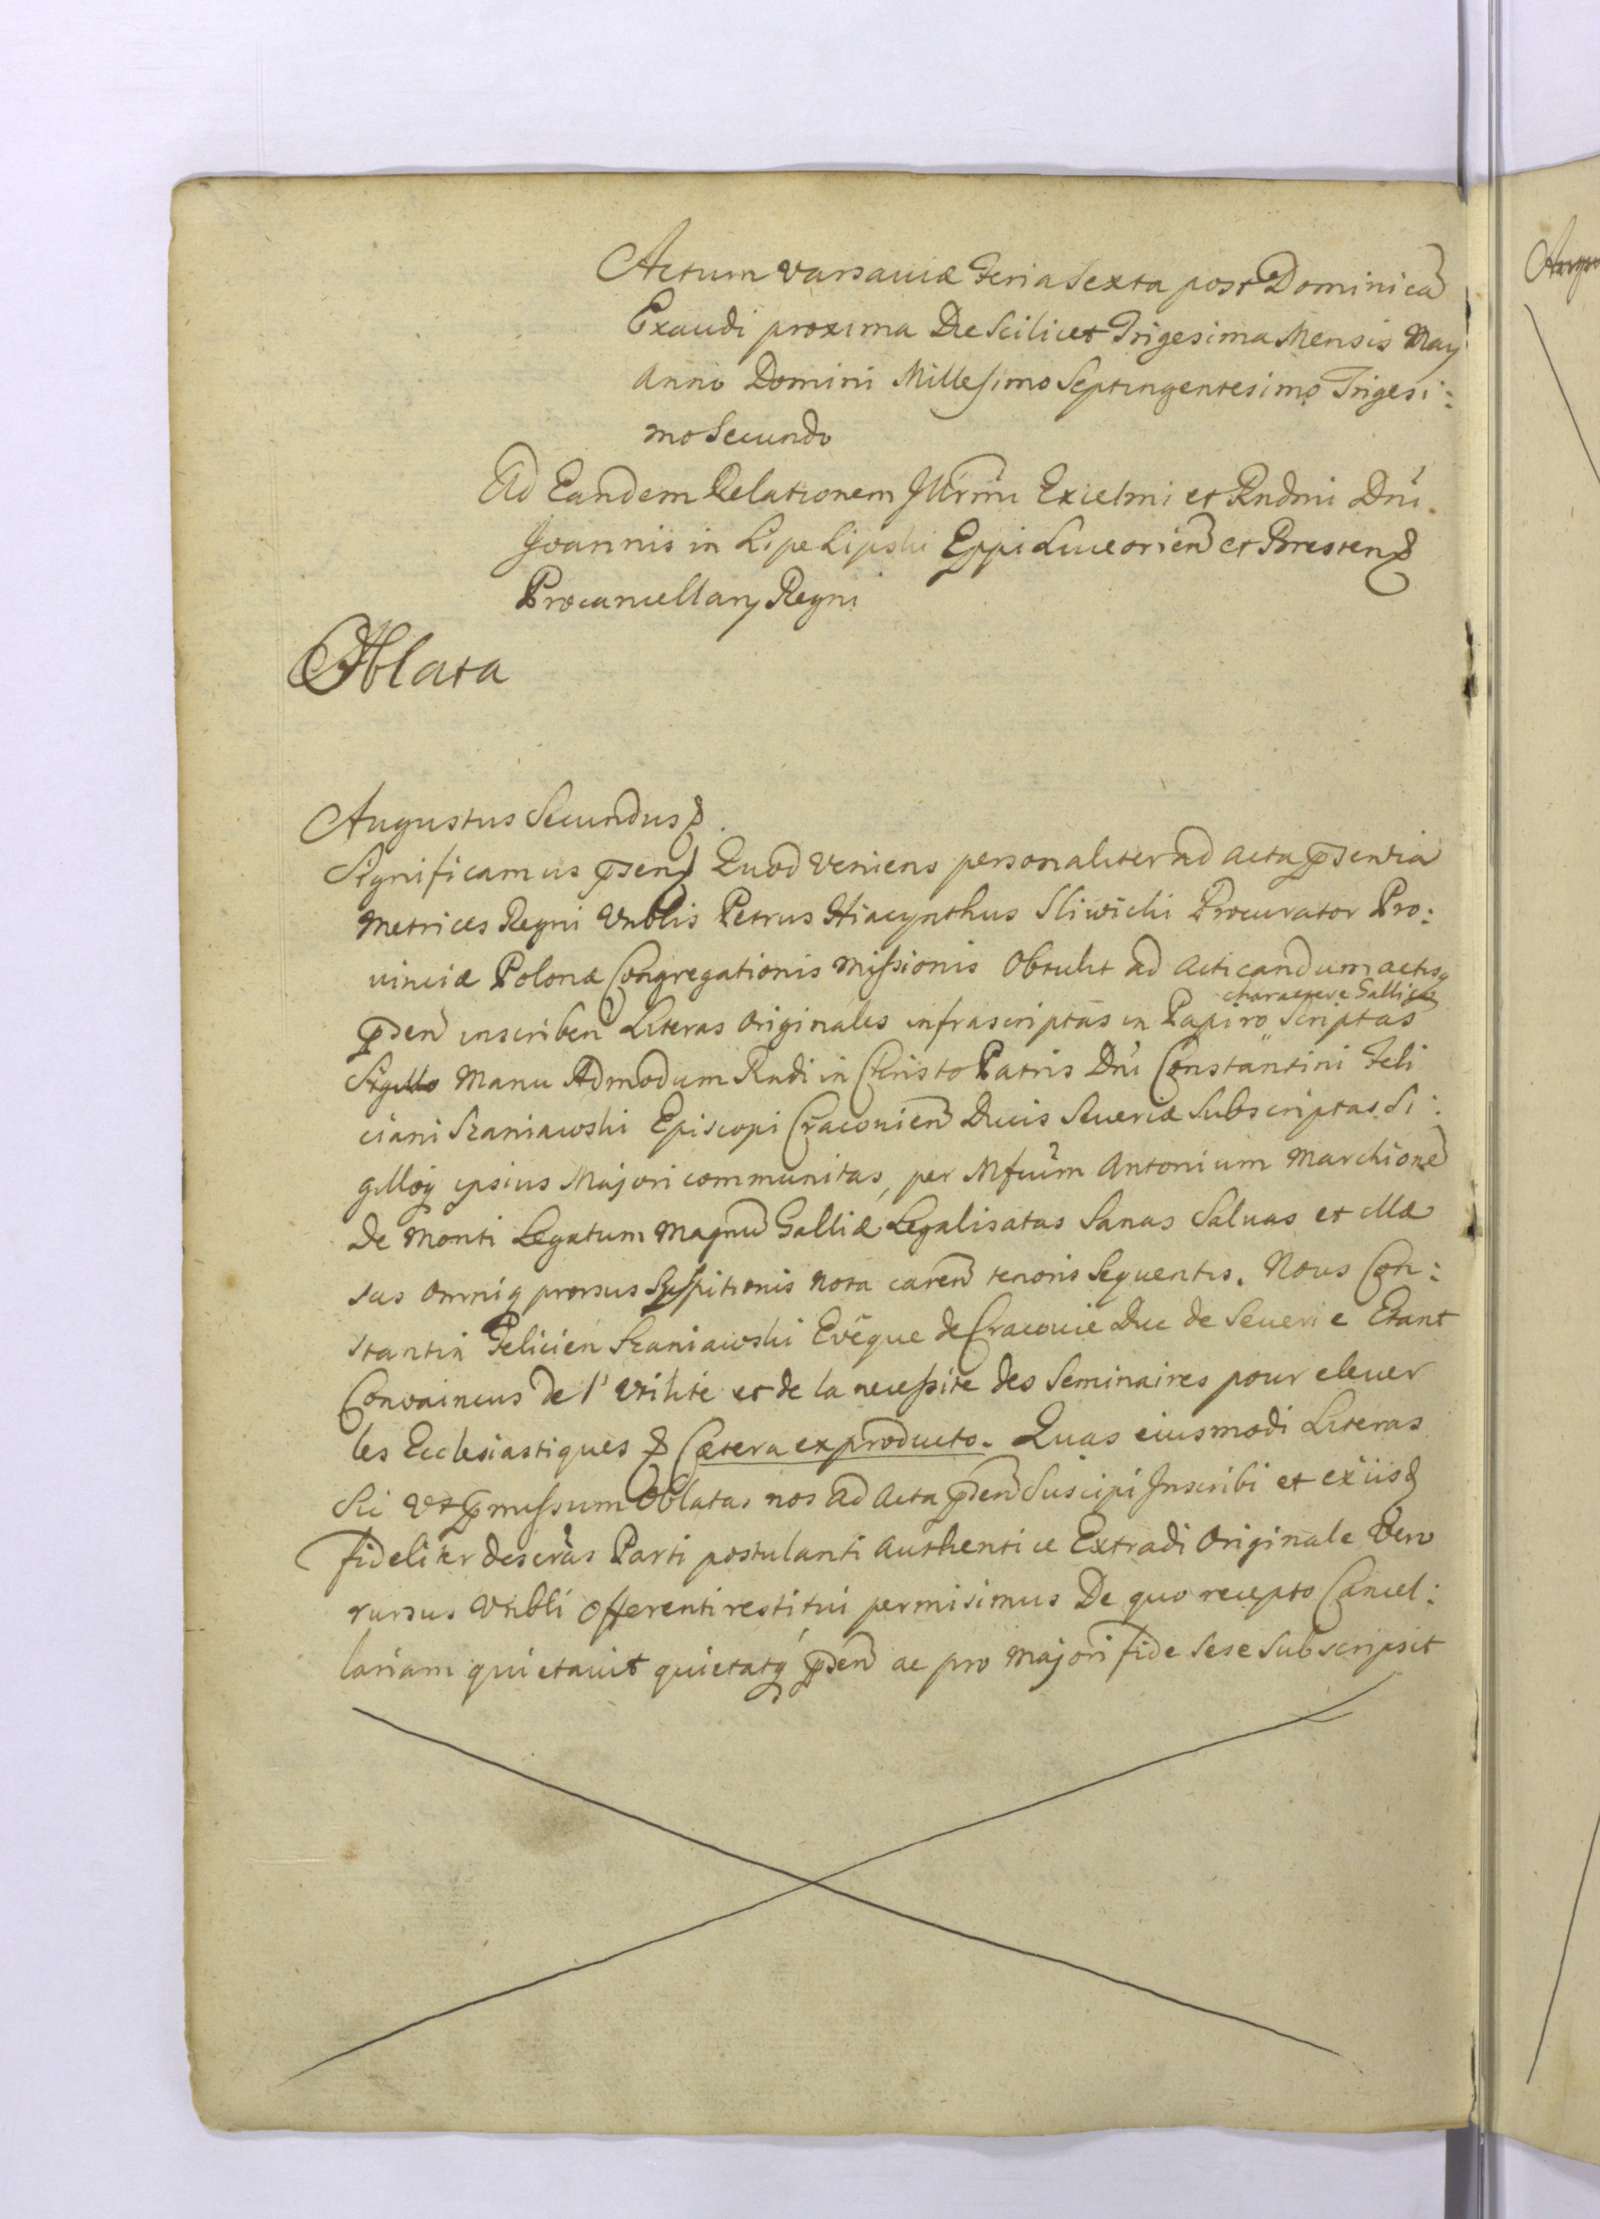 Actum Varsaviæ Feria Sexta post Dominicā
Exaudi proxima Die Scilicet Trigesima Mensis Maij
Anno Domini Millesimo Septingentesimo Trigesi:
mo Secundo
Ad Eandem Relationem Illrmi Excelmi et Rndmi Dni.
Joannis in Lipe Lipski Eppi Luceorien et Bresten
Procancellarij Regni
Oblata
Augustus Secundus
Significamus psen Quod Veniens personaliter ad Acta psentia
Metrices Regni Vnblis Petrus Hiacynthus Sliwicki Procurator Pro:
vinciæ Polonæ Congregationis Missionis Obtulit ad acticandum actisq
charactere Gallico
psen inscriben Literas Originales infrascriptas in Papiro Scriptas
Sigillo Manu Admodum Rndi in Christo Patris Dni Constantini Feli
ciani Szaniawski Episcopi Cracovien Ducis Severiæ Subscriptas Si:
gilloq ipsius Majori communitas, per Mfcum Antonium Marchionē
De Monti Legatum Magnū Galliæ Legalisatas Sanas Salvas et illæ
sas omniq prorsus Suspitionis nota caren tenoris Sequentis. Nous Con:
stantin Felicien Szaniawski Evêque de Cracovie Duc de Severie Etant
Convaincus de l'Vtilité et de la necessite des Seminaires pour elever
les Ecclesiastiques Cætera ex producto. Quas eiusmodi Literas
Sic Vt pmissum Oblatas nos ad Acta psen Suscipi Inscribi et ex iis
fideliter descrās Parti postulanti Authentice Extradi Originale Vero
rursus Vnbli Offerenti restitui permisimus De quo recepto Cancel:
lariam quietavit quietatq psen ac pro Majori fide Sese Subscripsit